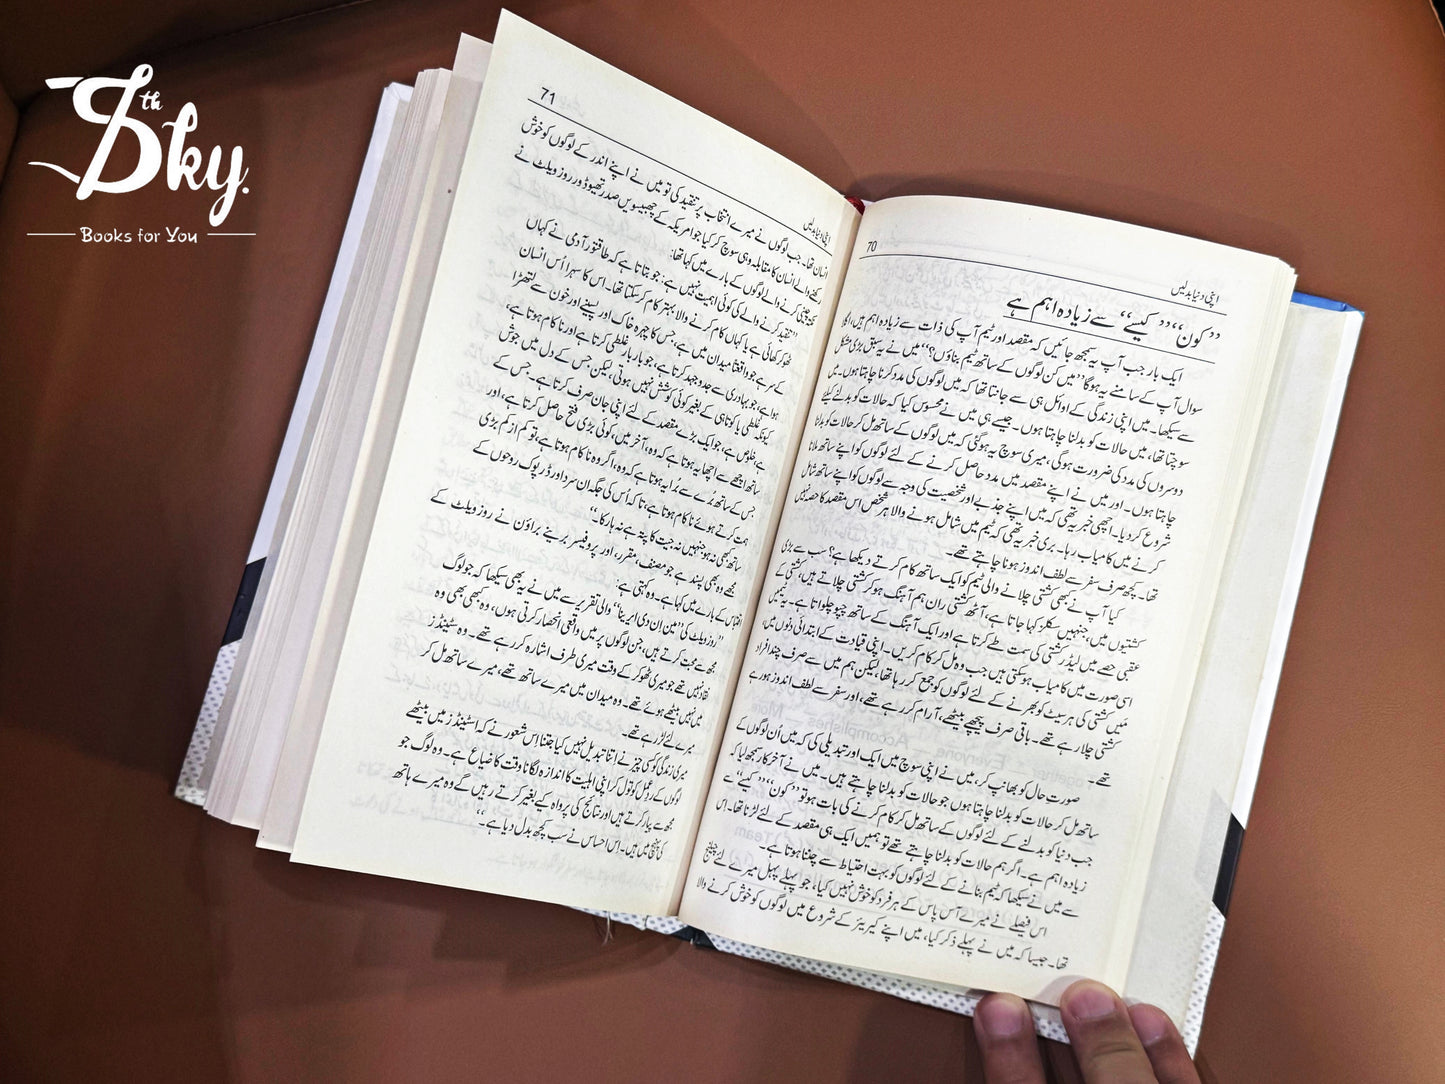 8th Sky.
Books for You
70
اپنی دنیا بدلیں
”کون“ ”کیسے“ سے زیادہ اہم ہے
ایک بار جب آپ یہ سمجھ جائیں کہ مقصد اور ٹیم آپ کی ذات سے زیادہ اہم ہیں، اگلا
سوال آپ کے سامنے یہ ہوگا ”میں کن لوگوں کے ساتھ ٹیم بناؤں؟“ میں نے یہ سبق بڑی مشکل
سے سیکھا۔ میں اپنی زندگی کے اوائل ہی سے جانتا تھا کہ میں لوگوں کی مدد کرنا چاہتا ہوں۔ میں
سوچتا تھا، میں حالات کو بدلنا چاہتا ہوں۔ جیسے ہی میں نے محسوس کیا کہ حالات کو بدلنے کیلئے
دوسروں کی مدد کی ضرورت ہوگی، میری سوچ یہ ہوگئی کہ میں لوگوں کے ساتھ مل کر حالات کو بدلنا
چاہتا ہوں۔ اور میں نے اپنے مقصد میں مدد حاصل کرنے کے لئے لوگوں کو اپنے ساتھ ملانا
شروع کر دیا۔ اچھی خبر یہ تھی کہ میں اپنے جذبے اور شخصیت کی وجہ سے لوگوں کو اپنے ساتھ شامل
کرنے میں کامیاب رہا۔ بری خبر یہ تھی کہ ٹیم میں شامل ہونے والا ہر شخص اس مقصد کا حصہ نہیں
تھا۔ کچھ صرف سفر سے لطف اندوز ہونا چاہتے تھے۔
کیا آپ نے کبھی کشتی چلانے والی ٹیم کو ایک ساتھ کام کرتے دیکھا ہے؟ سب سے بڑی
کشتیوں میں، جنہیں سکلز کہا جاتا ہے، آٹھ کشتی ران ہم آہنگ ہو کر کشتی چلاتے ہیں، کشتی کے
عقبی حصے میں لیڈر کشتی کی سمت طے کرتا ہے اور ایک آہنگ کے ساتھ چپو چلواتا ہے۔ یہ ٹیمیں
اسی صورت میں کامیاب ہو سکتی ہیں جب وہ مل کر کام کریں۔ اپنی قیادت کے ابتدائی دنوں میں،
میں کشتی کی ہر سیٹ کو بھرنے کے لئے لوگوں کو جمع کر رہا تھا، لیکن ہم میں سے صرف چند افراد
کشتی چلا رہے تھے۔ باقی صرف پیچھے بیٹھے، آرام کر رہے تھے، اور سفر سے لطف اندوز ہو رہے
تھے۔
صورت حال کو بھانپ کر، میں نے اپنی سوچ میں ایک اور تبدیلی کی کہ میں اُن لوگوں کے
ساتھ مل کر حالات کو بدلنا چاہتا ہوں جو حالات کو بدلنا چاہتے ہیں۔ میں نے آخر کار سمجھ لیا کہ
جب دنیا کو بدلنے کے لئے لوگوں کے ساتھ مل کر کام کرنے کی بات ہو تو ”کون“ ”کیسے“ سے
زیادہ اہم ہے۔ اگر ہم حالات کو بدلنا چاہتے تھے تو ہمیں ایک ہی مقصد کے لئے لڑنا تھا۔ اس
سے میں نے سیکھا کہ ٹیم بنانے کے لئے لوگوں کو بہت احتیاط سے چننا ہوتا ہے۔
اس فیصلے نے میرے آس پاس کے ہر فرد کو خوش نہیں کیا، جو پہلے پہل میرے لئے چیلنج
تھا۔ جیسا کہ میں نے پہلے ذکر کیا، میں اپنے کیریئر کے شروع میں لوگوں کو خوش کرنے والا
71
اپنی دنیا بدلیں
انسان تھا۔ جب لوگوں نے میرے انتخاب پر تنقید کی تو میں نے اپنے اندر کے لوگوں کو خوش
رکھنے والے انسان کا مقابلہ وہی سوچ کر کیا جو امریکہ کے چھبیسویں صدر تھیوڈور روز ویلٹ نے
نکتہ چینی کرنے والے لوگوں کے بارے میں کہا تھا:
”تنقید کرنے والے کی کوئی اہمیت نہیں ہے: جو بتاتا ہے کہ طاقتور آدمی نے کہاں
ٹھوکر کھائی ہے یا کہاں کام کرنے والا بہتر کام کر سکتا تھا۔ اس کا سہرا اُس انسان
کے سر ہے جو واقعتاً میدان میں ہے، جس کا چہرہ خاک اور پسینے اور خون سے لتھڑا
ہوا ہے، جو بہادری سے جدوجہد کرتا ہے، جو بار بار غلطی کرتا ہے اور ناکام ہوتا ہے،
کیونکہ غلطی یا کوتاہی کے بغیر کوئی کوشش نہیں ہوتی، لیکن جس کے دل میں جوش
ہے، خلوص ہے، جو ایک بڑے مقصد کے لئے اپنی جان صرف کرتا ہے۔ جس کے
ساتھ اچھے سے اچھا یہ ہوتا ہے کہ وہ، آخر میں، کوئی بڑی فتح حاصل کرتا ہے، اور
جس کے ساتھ بُرے سے بُرا یہ ہوتا ہے کہ وہ، اگر وہ ناکام ہوتا ہے، تو کم از کم بڑی
ہمت کرتے ہوئے ناکام ہوتا ہے، تاکہ اُس کی جگہ ان سرد اور ڈرپوک روحوں کے
ساتھ کبھی نہ ہو جنہیں نہ جیت کا پتہ ہے نہ ہار کا۔“
مجھے وہ بھی پسند ہے جو مصنف، مقرر، اور پروفیسر برینے براؤن نے روز ویلٹ کے
اقتباس کے بارے میں کہا ہے۔ وہ کہتی ہے:
”روز ویلٹ کی ”مین اِن دی ایرینا“ والی تقریر سے میں نے یہ بھی سیکھا کہ جو لوگ
مجھ سے محبت کرتے ہیں، جن لوگوں پر میں واقعی انحصار کرتی ہوں، وہ کبھی بھی وہ
نقاد نہیں تھے جو میری ٹھوکر کے وقت میری طرف اشارہ کر رہے تھے۔ وہ سٹینڈز
میں نہیں بیٹھے ہوئے تھے۔ وہ میدان میں میرے ساتھ تھے، میرے ساتھ مل کر
میرے لئے لڑ رہے تھے۔
میری زندگی کو کسی چیز نے اتنا تبدیل نہیں کیا جتنا اِس شعور نے کہ اسٹینڈز میں بیٹھے
لوگوں کے ردعمل کو تول کر اپنی اہلیت کا اندازہ لگانا وقت کا ضیاع ہے۔ وہ لوگ جو
مجھ سے پیار کرتے ہیں اور نتائج کی پرواہ کے بغیر کرتے رہیں گے وہ میرے ہاتھ
کی پہنچ میں ہیں۔ اس احساس نے سب کچھ بدل دیا ہے۔“